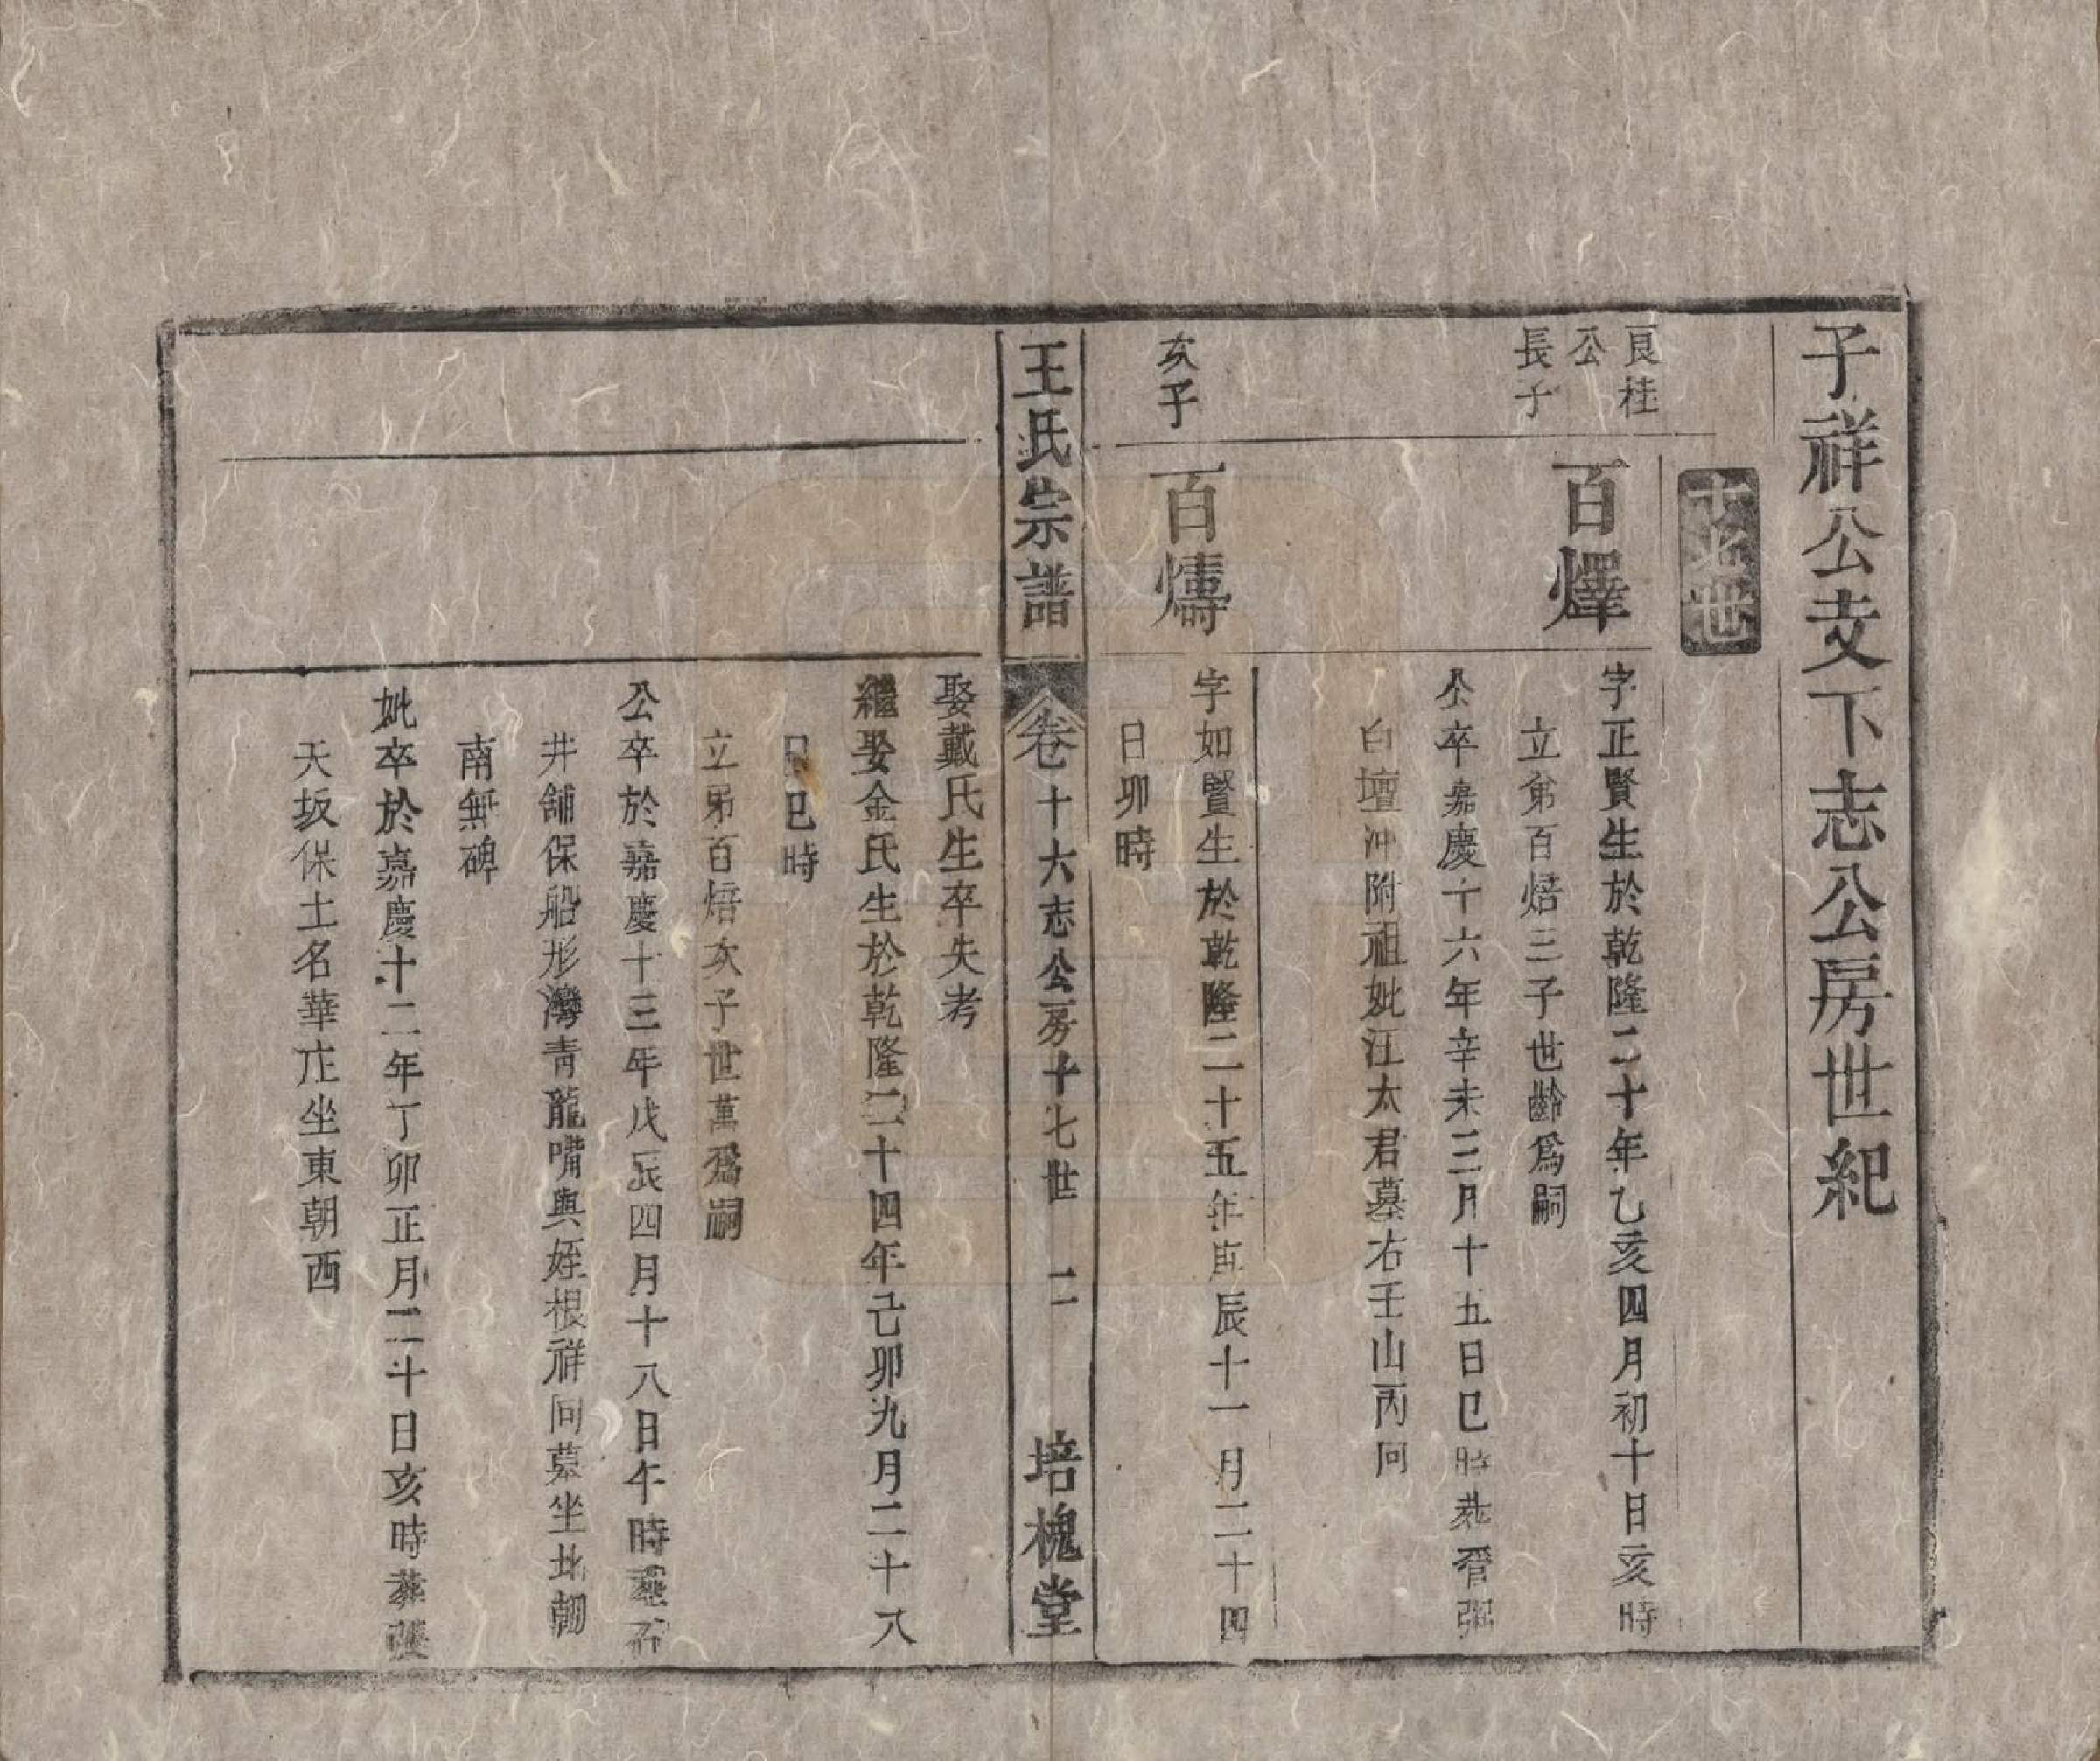 子祥公支下志公房世紀
十七世
良桂
公
長子
百燡
字正賢生於乾隆二十年乙亥四月初十日亥時
立弟百焙三子世齡爲嗣
公卒嘉慶十六年辛未三月十五日巳時葬
白壇沖附祖妣汪太君墓右壬山丙向
次子
百燽
字如賢生於乾隆二十五年庚辰十一月二十四
日卯時
王氏宗譜
卷十六志公房十七世 二
培槐堂
娶戴氏生卒失考
繼娶金氏生於乾隆二十四年己卯九月二十八
日巳時
立弟百焙次子世萬爲嗣
公卒於嘉慶十三年戊辰四月十八日午時葬石
井舖保船形灣青龍嘴與姪根祥同墓坐北朝
南無碑
妣卒於嘉慶十二年丁卯正月二十日亥時葬張
天坂保土名華庄坐東朝西